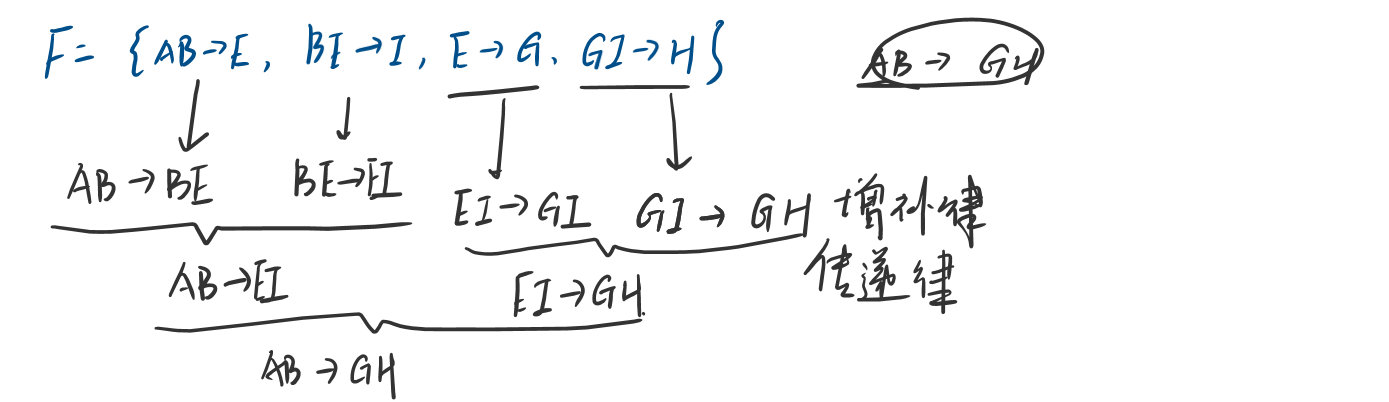 F= {AB→E, BE→I, E→G、GI→H} AB→GH
AB→BE BE→EI
EI→GI GI→GH 增补律
AB→EI EI→GH. 传递律
AB→GH